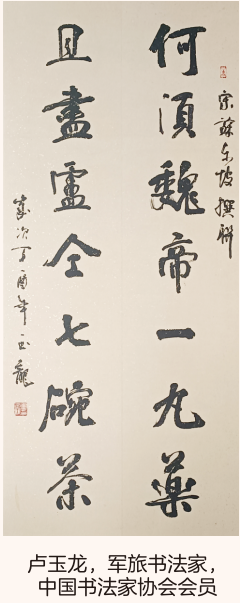 宋蘇东坡撰聯
何須魏帝一九藥
且盡盧仝七碗茶
歲次丁酉年玉龍
卢玉龙，军旅书法家，
中国书法家协会会员